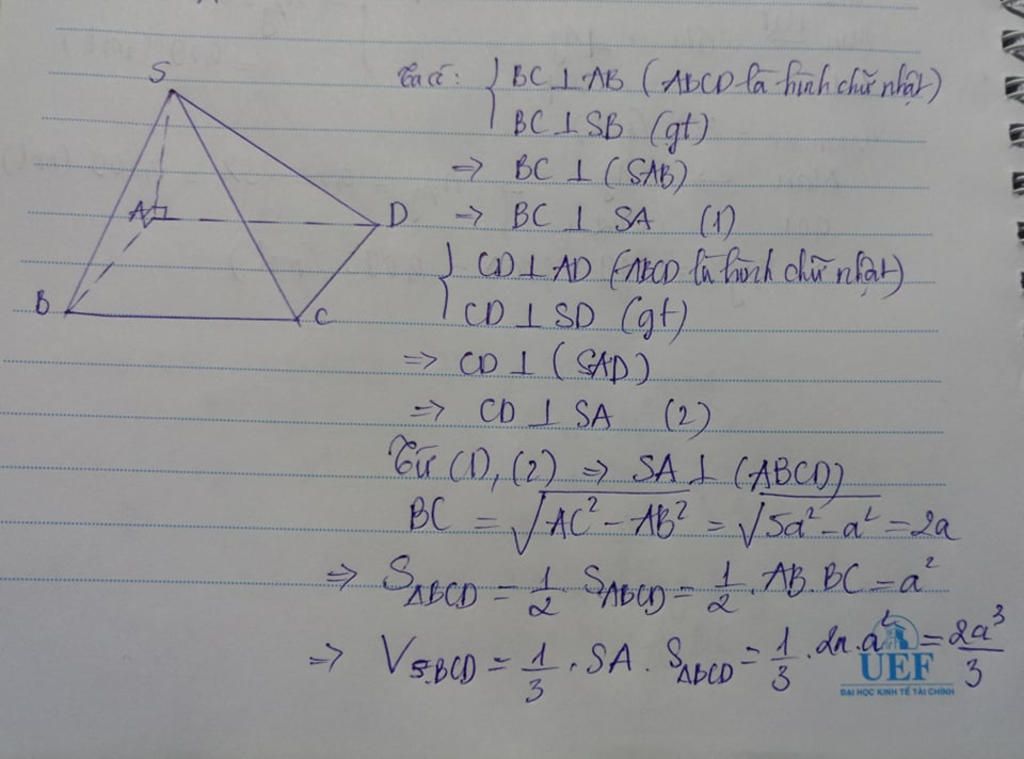 S
A
D
B
C
Ta có: { BC ⊥ AB (ABCD là hình chữ nhật)
BC ⊥ SB (gt)
⇒ BC ⊥ (SAB)
⇒ BC ⊥ SA (1)
{ CD ⊥ AD (ABCD là hình chữ nhật)
CD ⊥ SD (gt)
⇒ CD ⊥ (SAD)
⇒ CD ⊥ SA (2)
Từ (1), (2) ⇒ SA ⊥ (ABCD)
BC = √(AC² - AB²) = √(5a² - a²) = 2a
⇒ S_ΔBCD = 1/2 . S_ABCD = 1/2 . AB.BC = a²
⇒ V_S.BCD = 1/3 . SA . S_ΔBCD = 1/3 . 2a.a² = 2a³/3
UEF
ĐẠI HỌC KINH TẾ TÀI CHÍNH